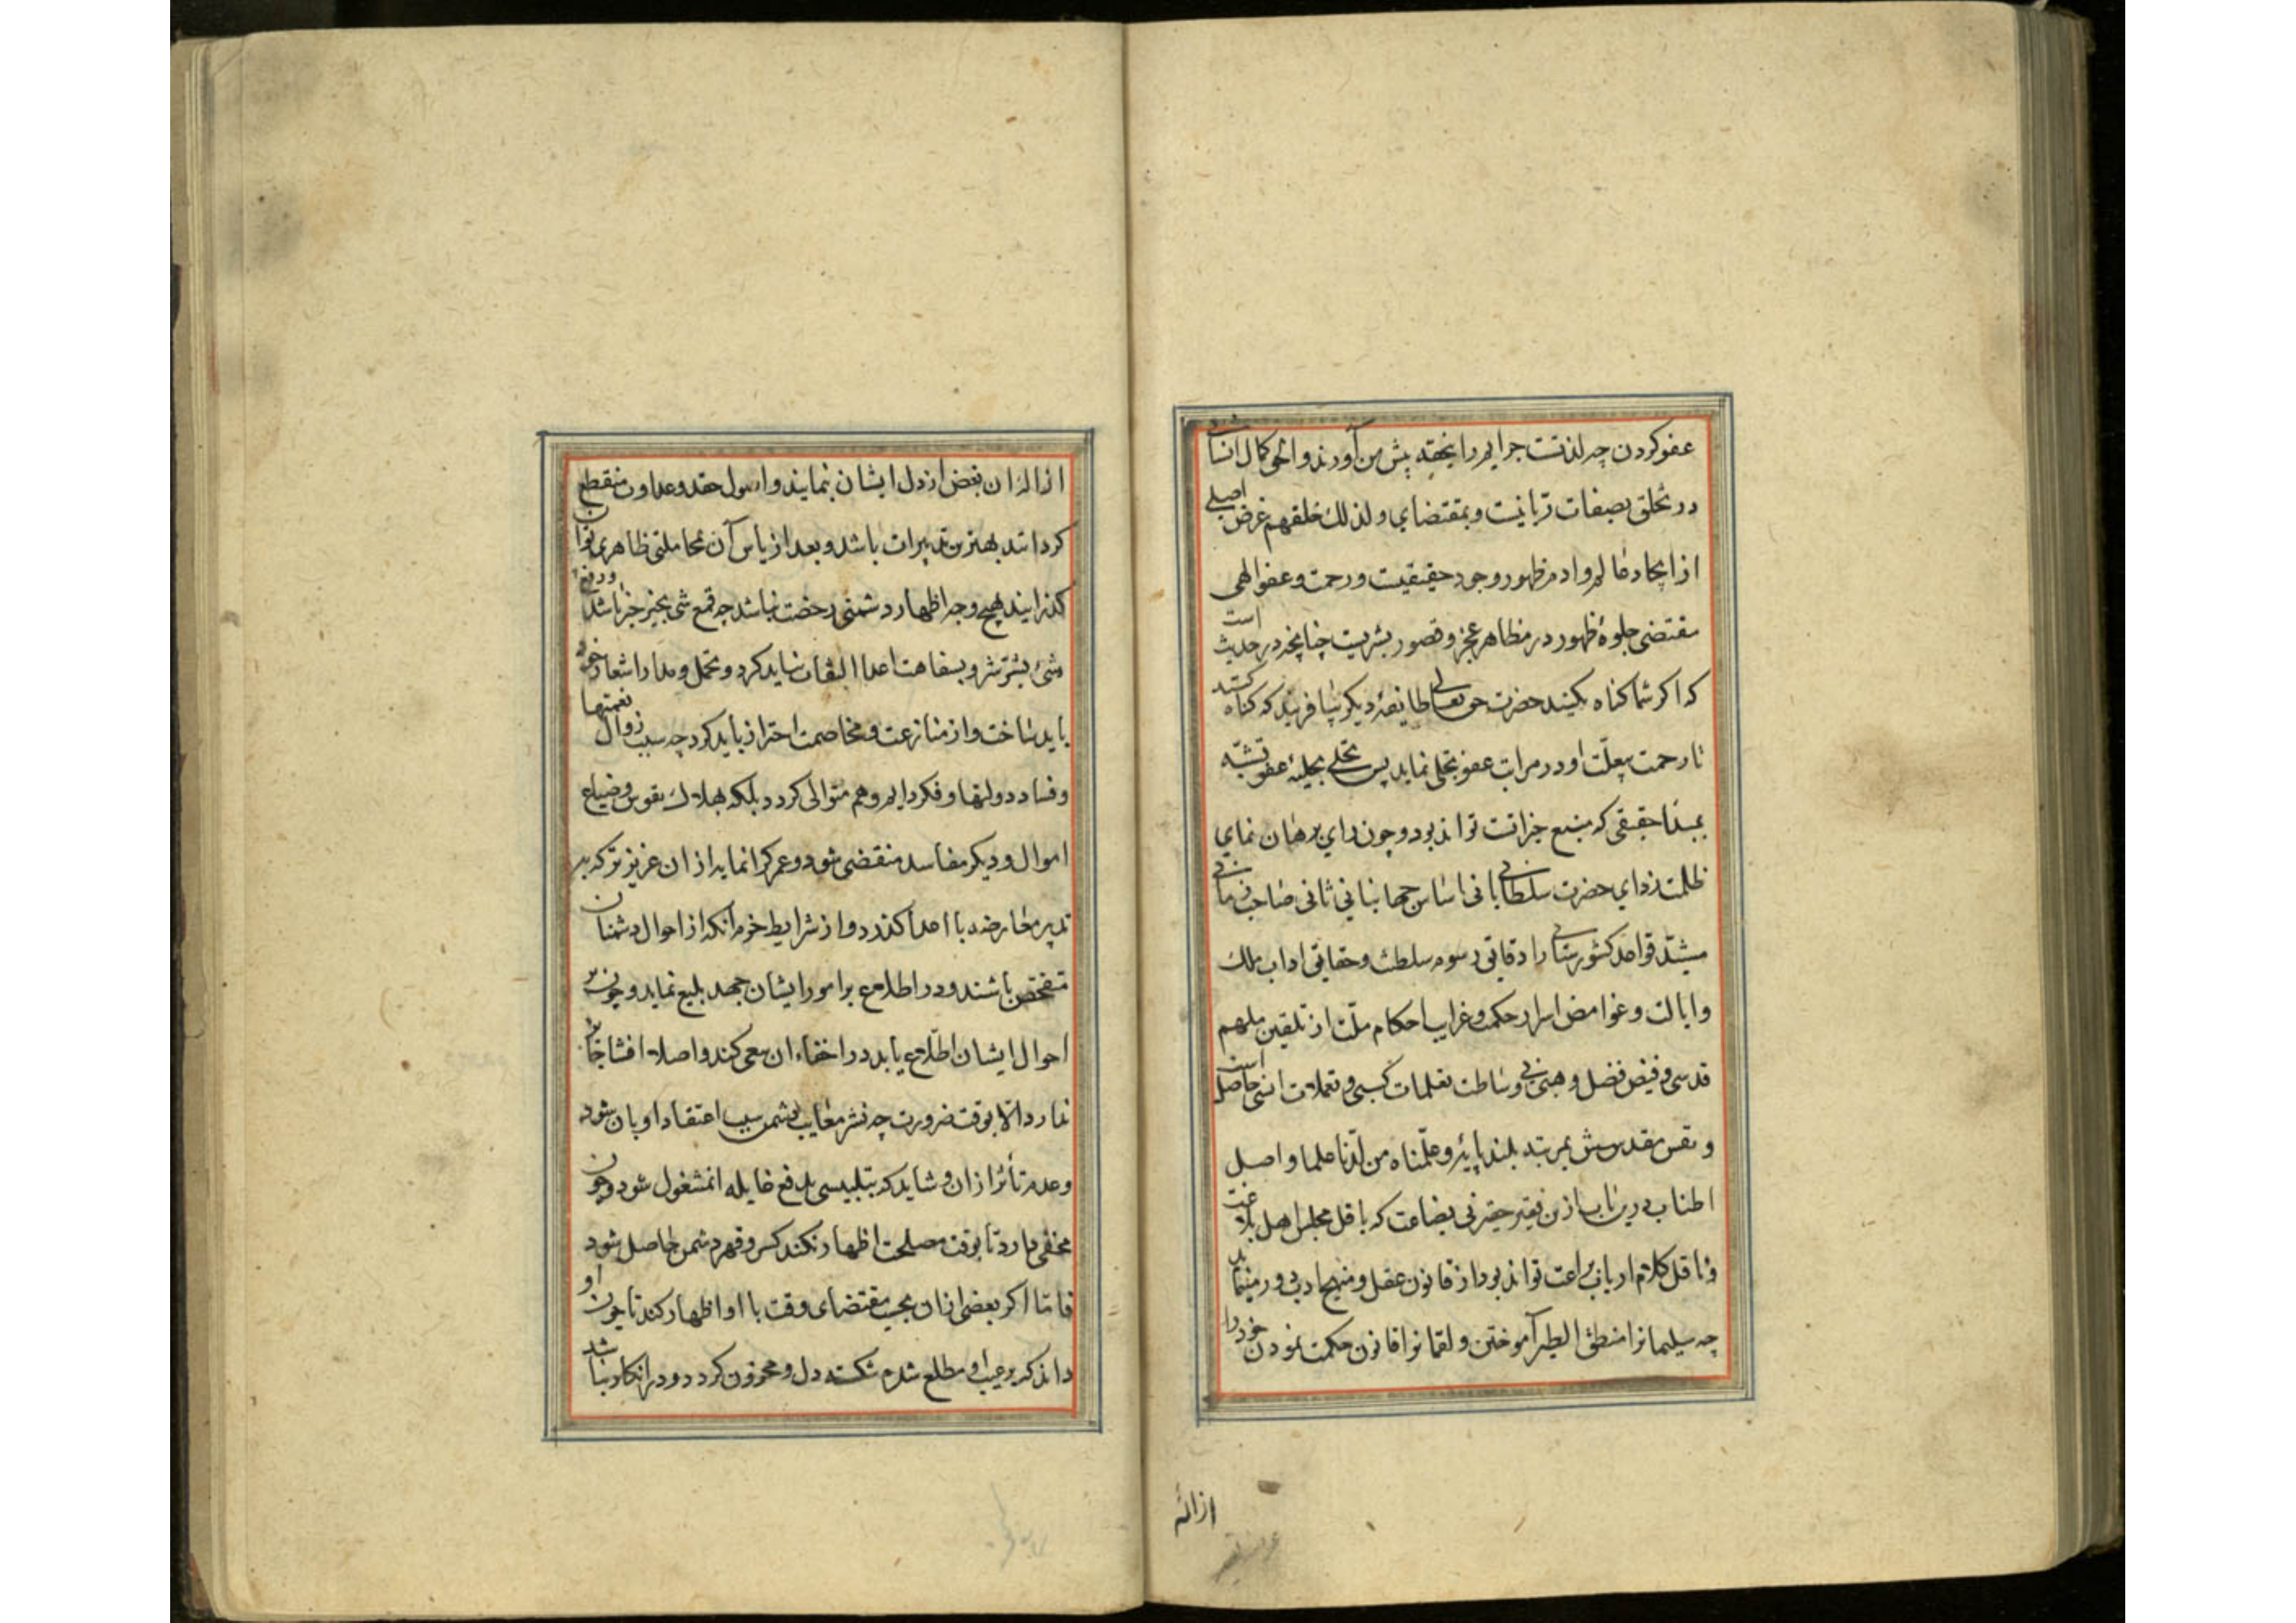 عفو کردن چه لذتست جرایم را بتحفه پیش من آورند و الحق کمال انسانی
در تخلق بصفات ربانیست و بمقتضای ولذلک خلقهم غرض اصلی
از ایجاد عالم و ادم ظهور وجود حقیقیت و رحمت و عفو الهی
مقتضی جلوهٔ ظهور در مظاهر عجز و قصور بشریت چنانچه در حدیث است
که اکر شما کناه نکنید حضرت حق تعالی طایفهٔ دیکر بیافریند که کناه کنند
تا رحمت بیعلت او در مرات عفو تجلی نماید پس تحلی بحلیهٔ عفو تشبّه
بمبدا حقیقی که منبع خیراتست تواند بود و چون رای برهان نمای
ظلمت زدای حضرت سلطانی بانی اساس جهانبانی ثانی صاحب زمانی
مشیّد قواعد کشورستانی را دقایق رسوم سلطنت و حقایق اداب ملک
و ایالت و غوامض اسرار حکمت و غرایب احکام ملّت از تلقین ملهم
قدسی و فیض فضل وهبی بی وساطت تعلمات کسبی و تعملات انسی حاصل است
و نفس مقدسش بمرتبه بلند پایهٔ وعلّمناه من لدنا علما واصل
اطناب درین باب ازین فقیر حقیر بی بضاعت که باقل مجلس اهل بلاغت
و ناقل کلام ارباب براعت تواند بود از قانون عقل و منهج ادب دور مینماید
چه سلیمانرا منطق الطیر آموختن و لقمانرا قانون حکمت نمودن خود را
ازاله
ازاله ان بغض از دل ایشان نمایند و اصول حقد و عداوت منقطع
کردانند بهترین تدبیرات باشد و بعد از یاس آن بمجاملتی ظاهر بتوان
کذرایند بهیچ وجه اظهار دشمنی رخصت نباشد چه قمع شر بخیر خیر باشد و دفع
شر بشر شر و بسفاهت اعدا التفات نباید کرد و تحمل و مدارا شعار خود
باید ساخت و از منازعت و مخاصمت احتراز باید کرد چه سبب زوال نعمتها
و فساد دولتها و فکر دایم و هم متوالی کردد بلکه بهلاک نفوس و ضیاع
اموال و دیکر مفاسد منقضی شود و عمر کرانمایه از ان عزیزتر که به
تدبیر معارضه با اعدا کذرد و از شرایط حزم آنکه از احوال دشمنان
متفحص باشند و در اطلاع بر امور ایشان جهد بلیغ نماید و چون بر
احوال ایشان اطلاع یابد در اخفاء ان سعی کند و اصلا افشا جایز
ندارد الا بوقت ضرورت چه نشر معایب دشمن سبب اعتقاد او بان شود
و عدم تأثر از ان و شاید که بتلبیسی بدفع غایله ان مشغول شود و چون
مخفی دارد تا بوقت مصلحت اظهار نکند کسر و قهر دشمن حاصل شود
فاما اکر بعضی از ان بحسب مقتضای وقت با او اظهار کند تا چون او
داند که بر عیب او مطلع شدم شکسته دل و محزون کردد و در انکار نباشد